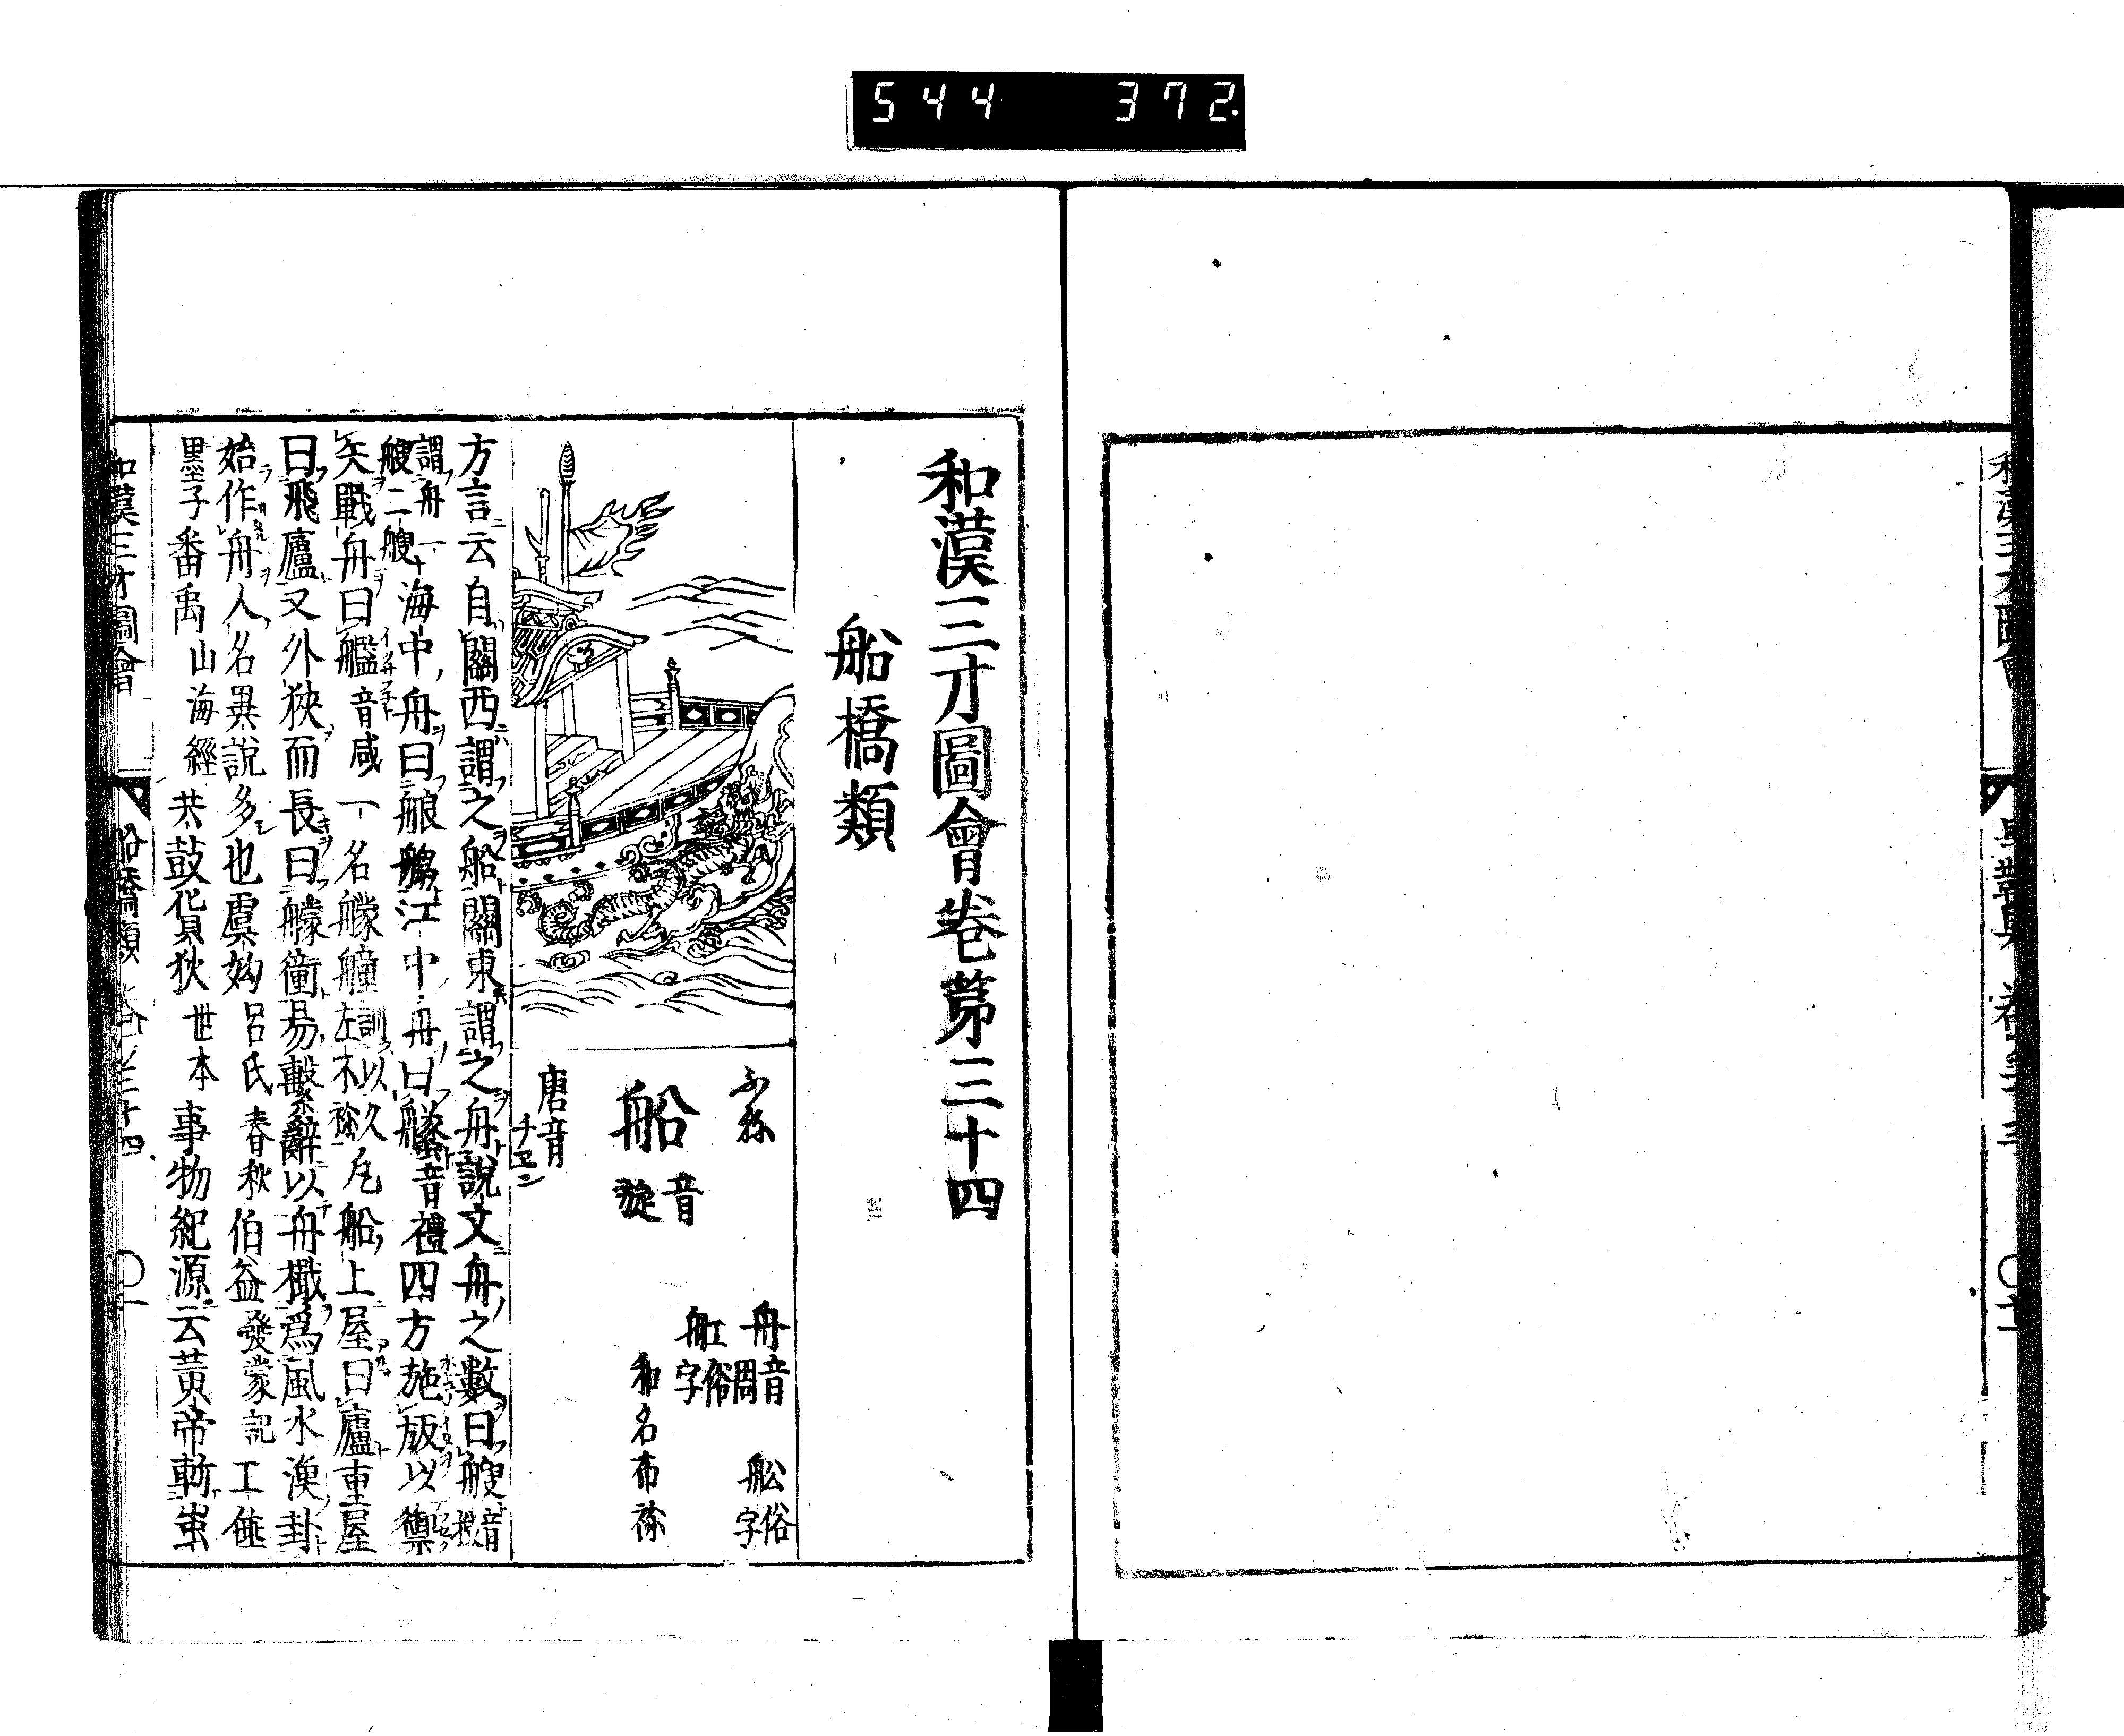 544 372.
和漢三才圖會卷第三十四
船橋類
ふね
船
音旋
唐音
チヱン
舟
音周
舩
俗字
舡
俗字
和名布祢
方言云自關西謂之船關東謂之舟說文舟之數曰艘音
謂舟一艘二艘海中舟曰艆䑿江中舟曰 音禮四方施版以禦
矢戰舟曰艦音咸一名艨艟訓以久左不祢凡船上屋曰廬重屋
曰飛廬又外狹而長曰艨衝易繫辭以舟檝爲風水渙卦
始作舟人名異說多也虞姁呂氏春秋伯益發蒙記工倕
墨子番禹山海經共鼓貨狄世本事物紀源云黃帝斬蚩
和漢三才圖會
船橋類
卷之三十四
〇一
和漢三才圖會